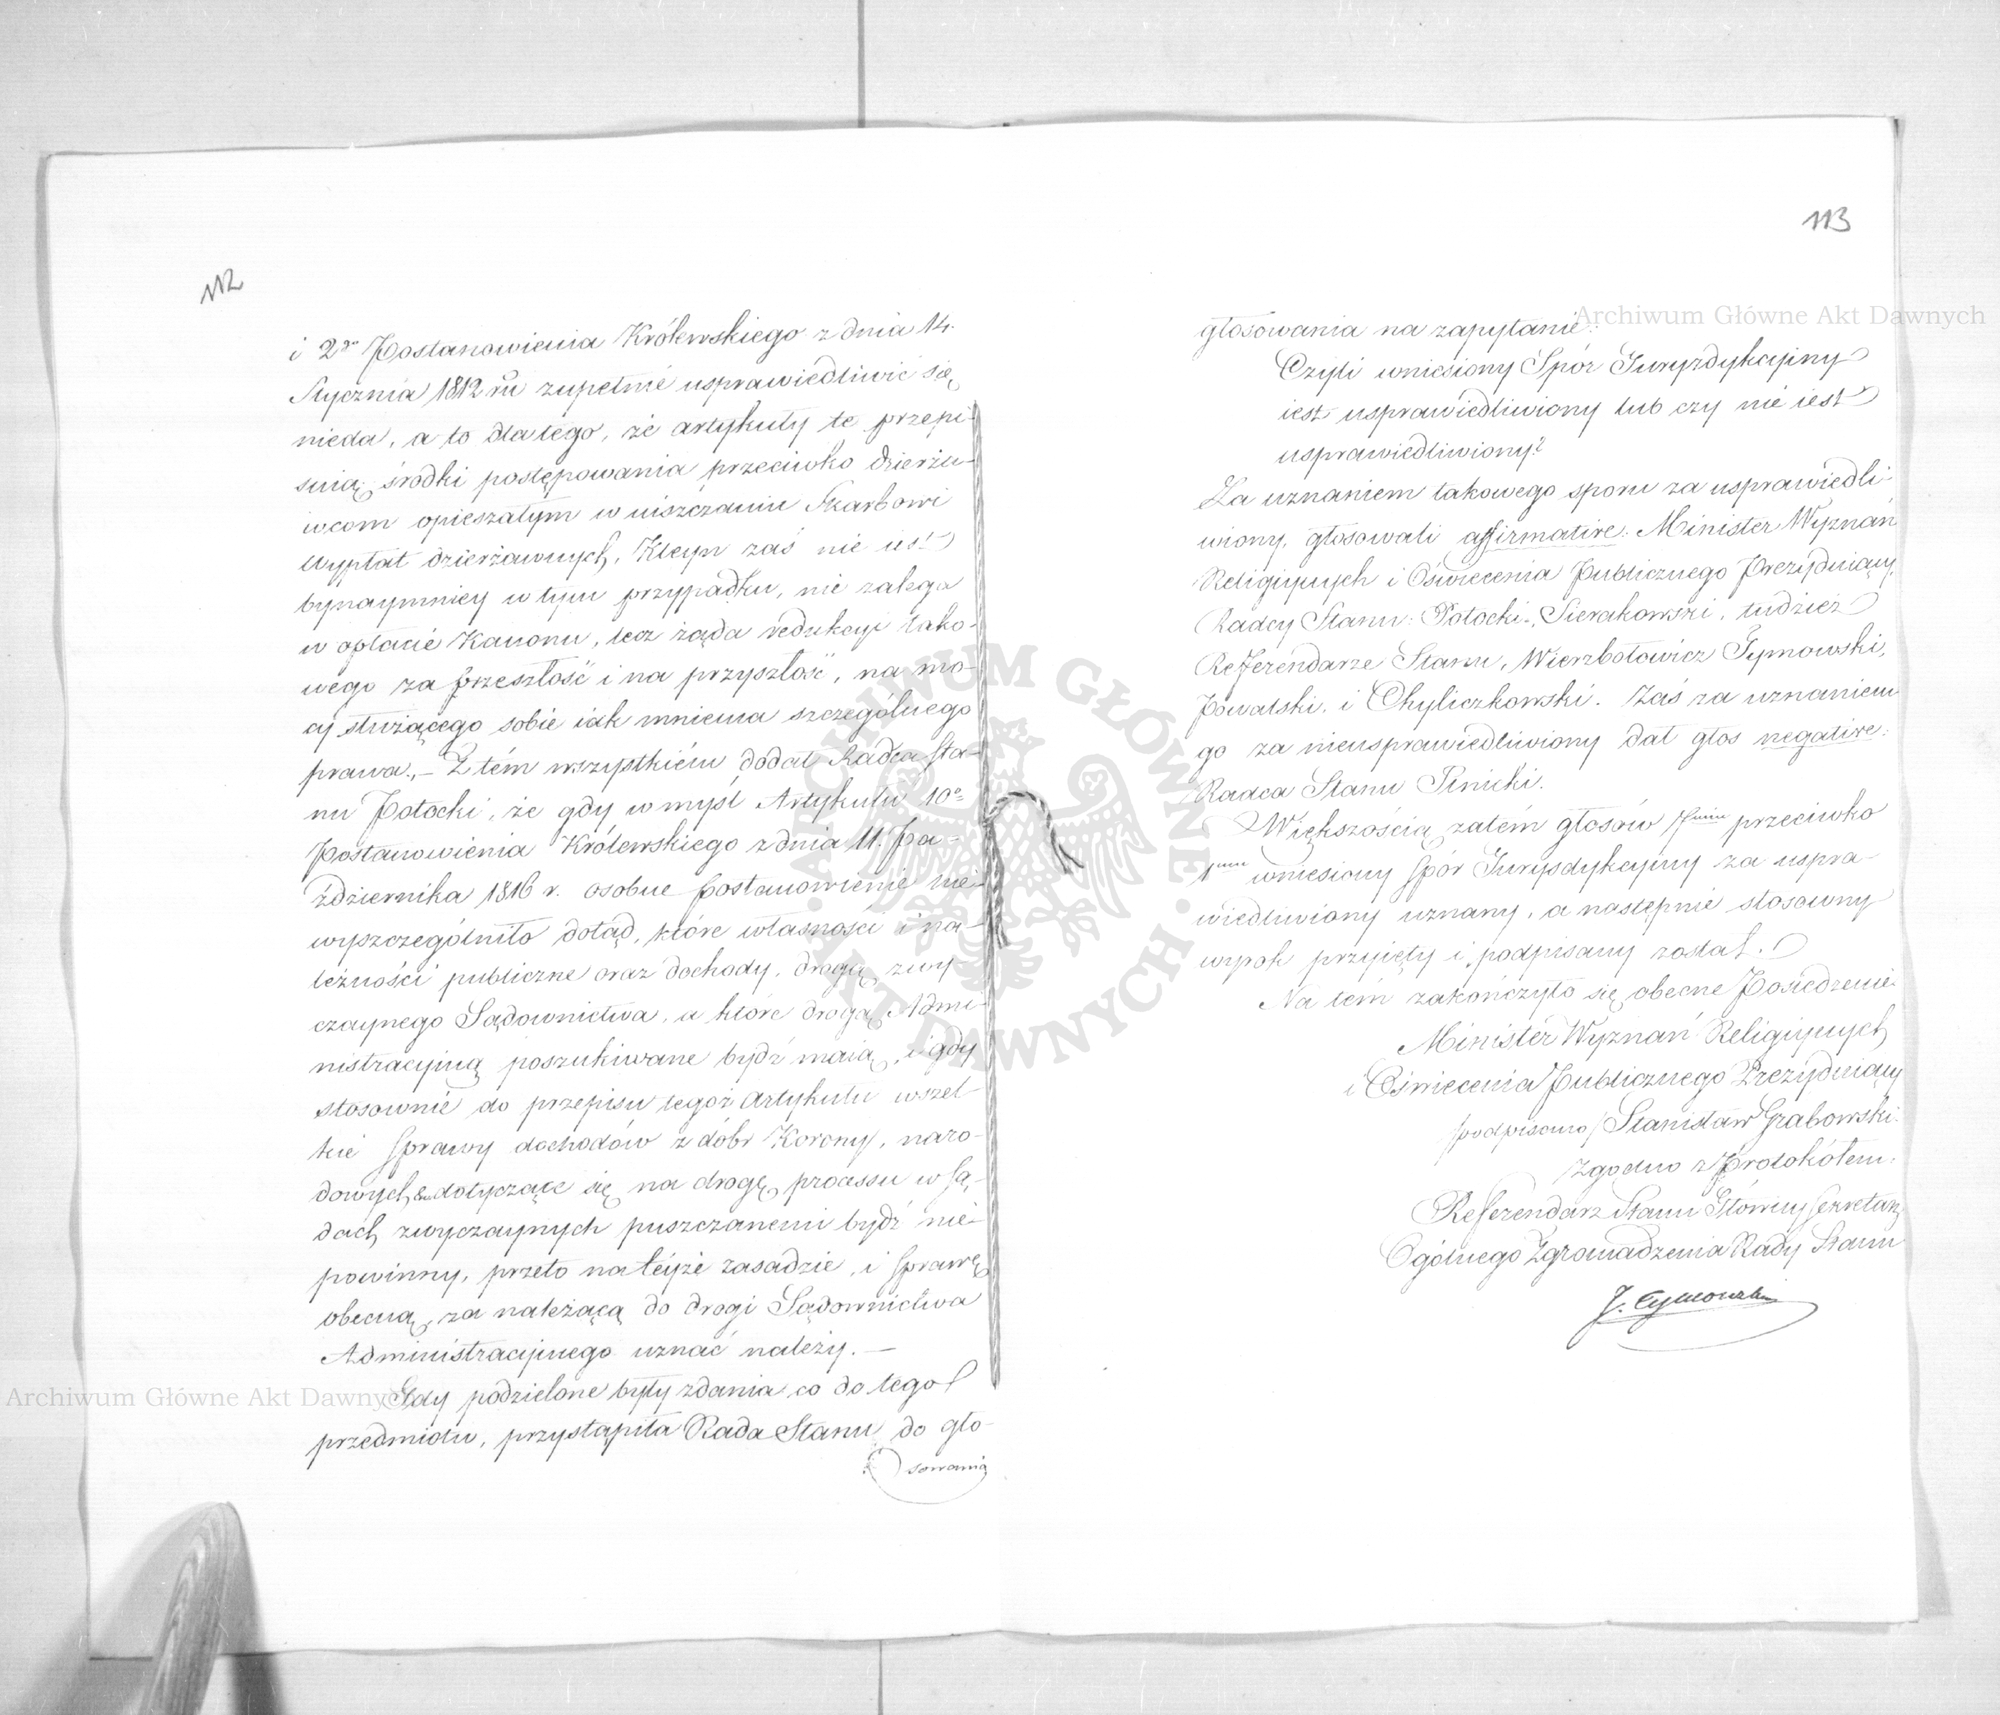 112
i 2go Postanowienia Królewskiego z dnia 14.
Stycznia 1812 ru zupełnie usprawiedliwić się
nieda, a to dla tego, że artykuły te przepi-
suią środki postępowania przeciwko dzierża-
wcom opieszałym w uiszczaniu Skarbowi
wypłat dzierżawnych, Kleyn zaś nie iest
bynaymniey w tym przypadku, nie zalega
w opłacie Kanonu, lecz żąda redukcyi tako-
wego za przeszłość i na przyszłość, na mo-
cy służącego sobie iak mniema szczególnego
prawa. – Z tém wszystkiém dodał Radca Sta-
nu Potocki, że gdy w myśl Artykułu 10o
Postanowienia Królewskiego z dnia 11. Pa-
ździernika 1816 r. osobne postanowienie nie
wyszczególniło dotąd, które własności i na-
leżności publiczne oraz dochody, drogą zwy-
czaynego Sądownictwa, a które drogą Admi-
nistracyjną poszukiwane bydź maią, i gdy
stosownie do przepisu tegoż Artykułu wszel-
kie sprawy dochodów z dóbr Korony, naro-
dowych &c dotyczące się na drogę processu w Są-
dach zwyczaynych puszczanemi bydź nie-
powinny, przeto na téyże zasadzie, i sprawę
obecną, za należącą do drogi Sądownictwa
Administracyjnego uznać należy. –
Gdy podzielone były zdania co do tego
przedmiotu, przystąpiła Rada Stanu do gło-
sowania
113
głosowania na zapytanie:
Czyli wniesiony Spór Juryzdykcyjny
iest usprawiedliwiony lub czy nie iest
usprawiedliwiony?
Za uznaniem takowego sporu za usprawiedli-
wiony, głosowali affirmative: Minister Wyznań
Religiynych i Oświecenia Publicznego Prezyduiący,
Radcy Stanu: Potocki, Sierakowski, tudzież
Referendarze Stanu, Wierzbołowicz Tymowski,
Kowalski, i Chyliczkowski. Zaś za uznaniem
go za nieusprawiedliwiony dał głos negative:
Radca Stanu Linicki.
Większością zatém głosów 7miu przeciwko
1mu wniesiony spór Jurysdykcyjny za uspra-
wiedliwiony uznany, a następnie stosowny
wyrok przyięty i podpisany został.
Na tém zakończyło się obecne Posiedzenie
Minister Wyznań Religiynych
i Oświecenia Publicznego Prezyduiący
/podpisano/ Stanisław Grabowski.
Zgodno z Protokółem:
Referendarz Stanu Główny Sekretarz
Ogólnego Zgromadzenia Rady Stanu
J. Tymowski
Archiwum Główne Akt Dawnych
Archiwum Główne Akt Dawnych
ARCHIWUM GŁÓWNE AKT DAWNYCH